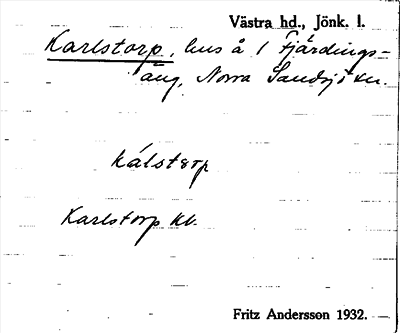 Västra hd., Jönk. l.
Karlstorp, hus å 1 Fjärdings-
äng, Norra Sandsjö sn.
kálstɛrp
Karlstorp kb.
Fritz Andersson 1932.